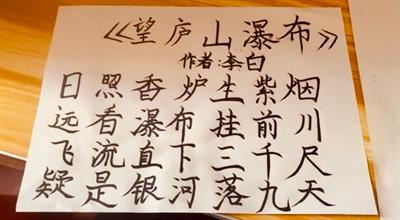 《望庐山瀑布》
作者:李白
日照香炉生紫烟
远看瀑布挂前川
飞流直下三千尺
疑是银河落九天